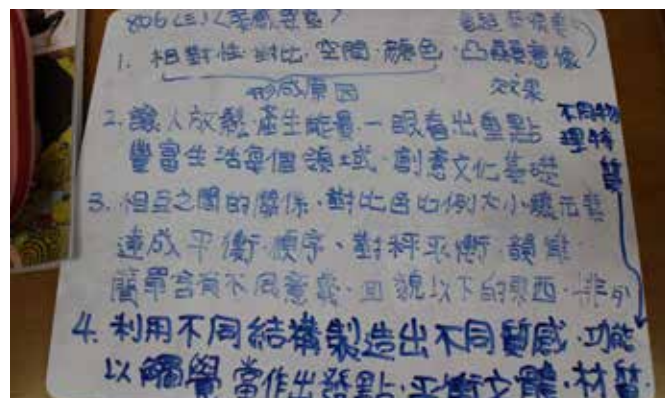 806 (三) 《美感
1. 相對性·對比·空間·顏色·凸顯意像
形成原因 效果
2. 讓人放鬆·產生能量·一眼看出重點
豐富生活每個領域·創意文化基礎
不同物
理特
質
3. 相互之間的關係·對比色比例大小
達成平衡·順序、對秤平衡·韻律
簡單含有不同意義·且 以下的東西·排列
4. 利用不同結構製造出不同質感·功能
以觸覺當作出發點·平衡立體·材質